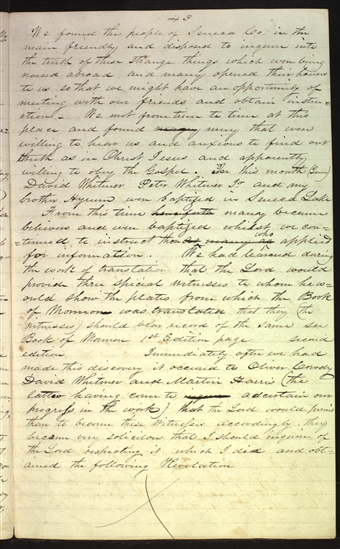 43
We found the people of Seneca Co, in the
main friendly and disposed to inquire into
the truth of these strange things which were being
noised abroad and many opened their houses
to us so that we might have an opportunity of
meeting with our friends and obtain instru-
ction. We met from time to time at this
place and found many that were
willing to hear us and anxious to find out
truth as in Christ Jesus and apparently
willing to obey the Gospel. his month
David Whitmer Peter Whitmer Jr and my
brother Hyrum were baptized in Seneca Lake
From this time henceforth many became
believers and were baptized whilst we con-
tinued to instruct as who applied
for information. We had learned during
the work of translation that the Lord would
provide three special witnesses to whom he w-
ould show the plates from which the Book
of Mormon was translated that they (the
witnesses) should bear record of the same see
Book of Mormon 1st Edition page second
edition Immediately after we had
made this discovery it occurred to Oliver Cowdry
David Whitmer and Martin Harris (the
latter having come to ascertain our
progress in the work) that the Lord would
them to become these Witnesses accordingly they
became very solicitous that I should inquire of
the Lord respecting it which I did and obt-
ained the following Revelation